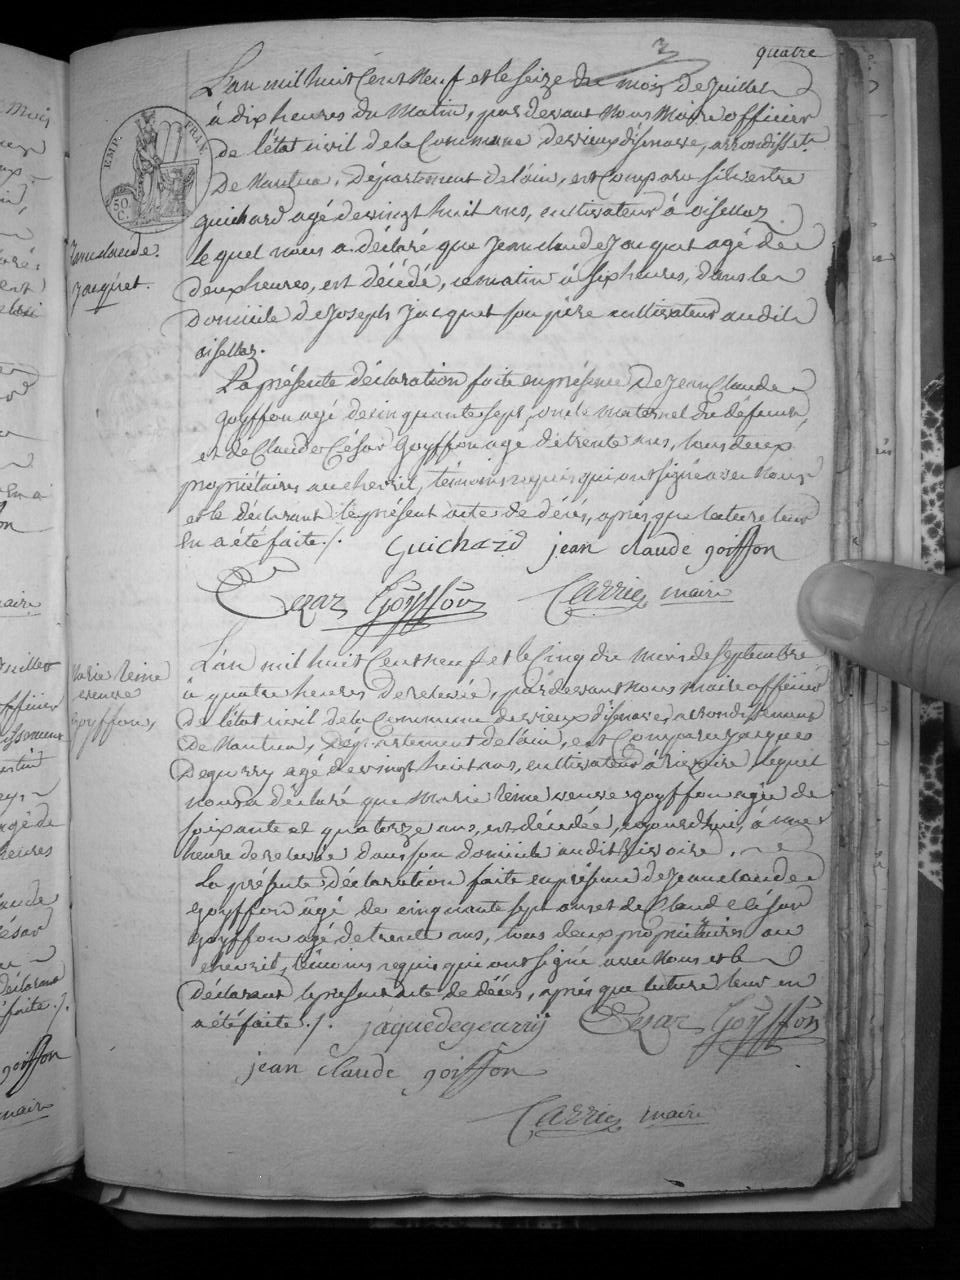 quatre
L'an mil huit Cent Neuf et le seize du mois de Juillet
à dix heures du Matin, par devant Nous Maire officier
de l'état civil de la Commune de vieux d'isenave, arrondisst
De Nantua, Département de l'ain, est Comparu silvestre
guichard agé de vingt huit ans, cultivateur à aisellaz
lequel nous a déclaré que Jean claude Jacquet agé de
deux heures, est décédé, ce matin à six heures, dans le
domicile de Joseph Jacquet son père cultivateur audit
aisellaz.
La présente déclaration faite en présence de Jean Claude
goyffon agé de cinquante sept, oncle maternel du défunt,
et de Claude César Goyffon agé de trente ans, tous deux
propriétaires au chevril, témoins requis qui ont signé avec Nous
et le declarant le présent acte de décès, après que lecture leur
En a été faite ./.
Guichard jean claude goiffon
Cezar Goyffon Carrier maire
Jean claude
Jacquet.
EMP. FRAN.
50 C.
L'an mil huit Cent neuf et le Cinq du mois de Septembre
à quatre heures de relevée, par devant Nous maire officier
de l'état civil de la Commune de vieux d'isenave, arrondissement
de Nantua, Département de l'ain, est Comparu Jacques
Degurry agé de vingt huit ans, cultivateur à lequel
nous a déclaré que Marie Reine veuve goyffon agée de
soixante et quatorze ans, est décédée, aujourd'hui, à une
heure de relevée dans son domicile audit
La présente déclaration faite en présence de Jean claude
Goyffon âgé de cinquante sept ans et de Claude César
Goyffon agé de trente ans, tous deux propriétaires au
chevril, témoins requis qui ont signé avec Nous et le
déclarant le présent acte de décès, après que lecture leur en
a été faite ./. jaquedegeurry Cezar Goyffon
jean claude goiffon
Carrier maire
Marie Reine
veuve
goyffon,